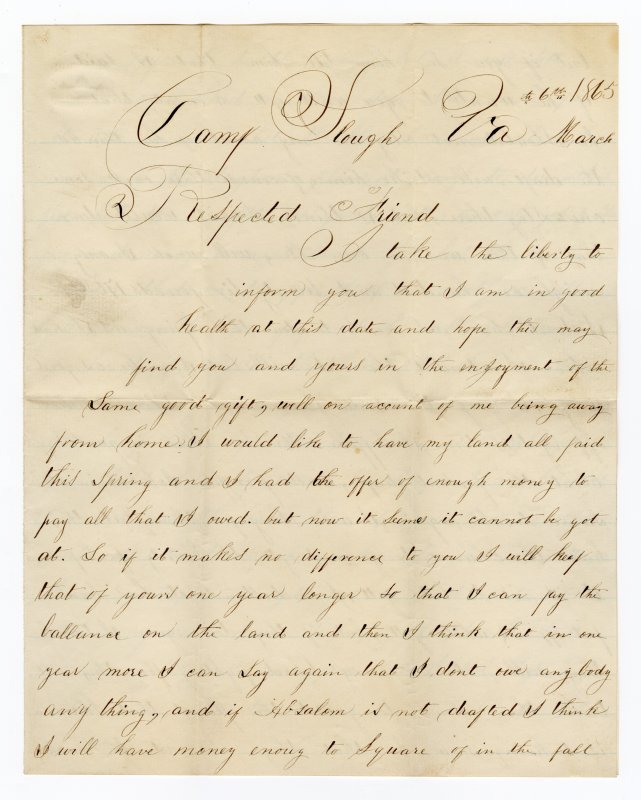 Camp Slough Va March
the 6th 1865
Respected Friend
I take the liberty to
inform you that I am in good
health at this date and hope this may
find you and yours in the enjoyment of the
Same good gift, well on acount of me being away
from home. I would like to have my land all paid
this Spring and I had the offer of enough money to
pay all that I owed. but now it Seems it cannot be got
at. So if it makes no difference to you I will keep
that of yours one year longer So that I can pay the
ballance on the land and then I think that in one
year more I can Say again that I dont owe any body
any thing, and if Absalom is not drafted I think
I will have money enoug to Square of in the fall